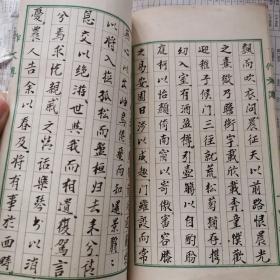 而吹衣問征夫以前路恨晨光
之熹微乃瞻衡宇載欣載奔童僕歡
迎稚子候門三徑就荒松菊猶存攜
幼入室有酒盈樽引壺觴以自酌眄
庭柯以怡顏倚南窗以寄傲審容膝
之易安園日涉以成趣門雖設而常
心以出岫鳥倦飛而知還景翳翳
以將入撫孤松而盤桓歸去來兮請
息交以絕游世與我而相遺復駕言
兮焉求悅親戚之情話樂琴書以消
憂農人告余以春及將有事於西疇